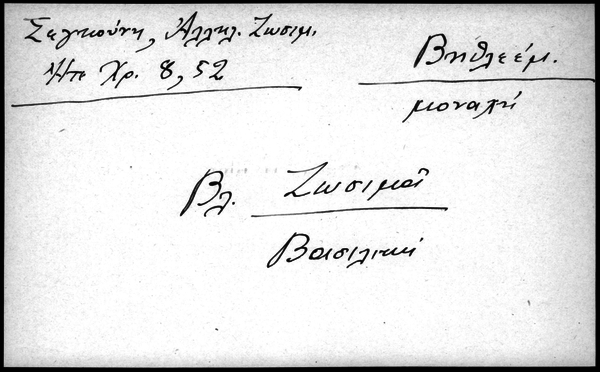 Σεγκούνη, Ἀλληλ. Ζωσιμ.
Ἠπ. Χρ. 8, 52
Βηθλεέμ.
μοναχή
Βλ. Ζωσιμᾶ
Βασιλική